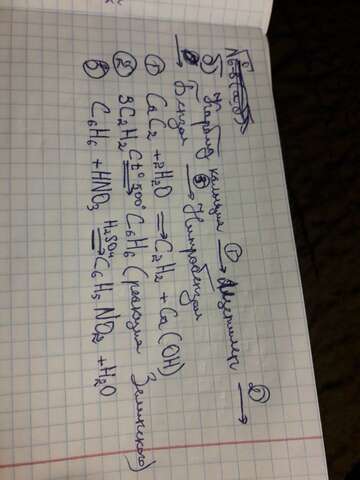 №6-8(а,б)
б) Карбид кальция ①→ Ацетилен ②→
→ Бензол ③→ Нитробензол
① CaC2 + 2H2O → C2H2 + Ca(OH)
② 3C2H2 C t° 500° C6H6 (реакция Зелинского)
③ C6H6 + HNO3 H2SO4 ⇒ C6H5NO2 + H2O